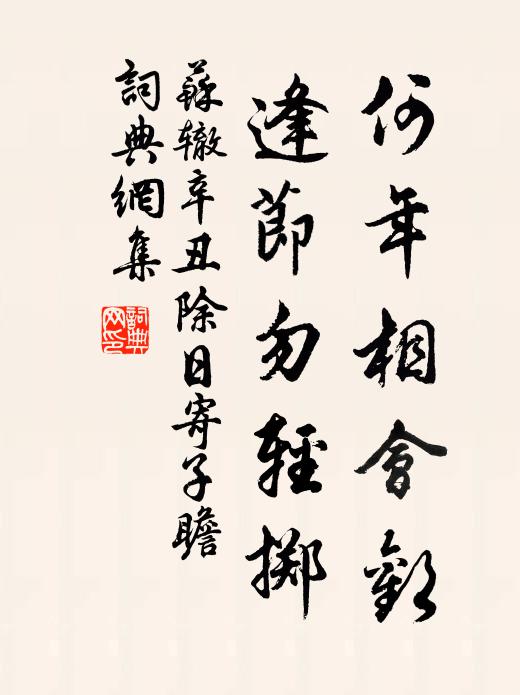 何年相會歡
逢節勿輕擲
蘇辙辛丑除日寄子瞻
詞典網集
詞典网印